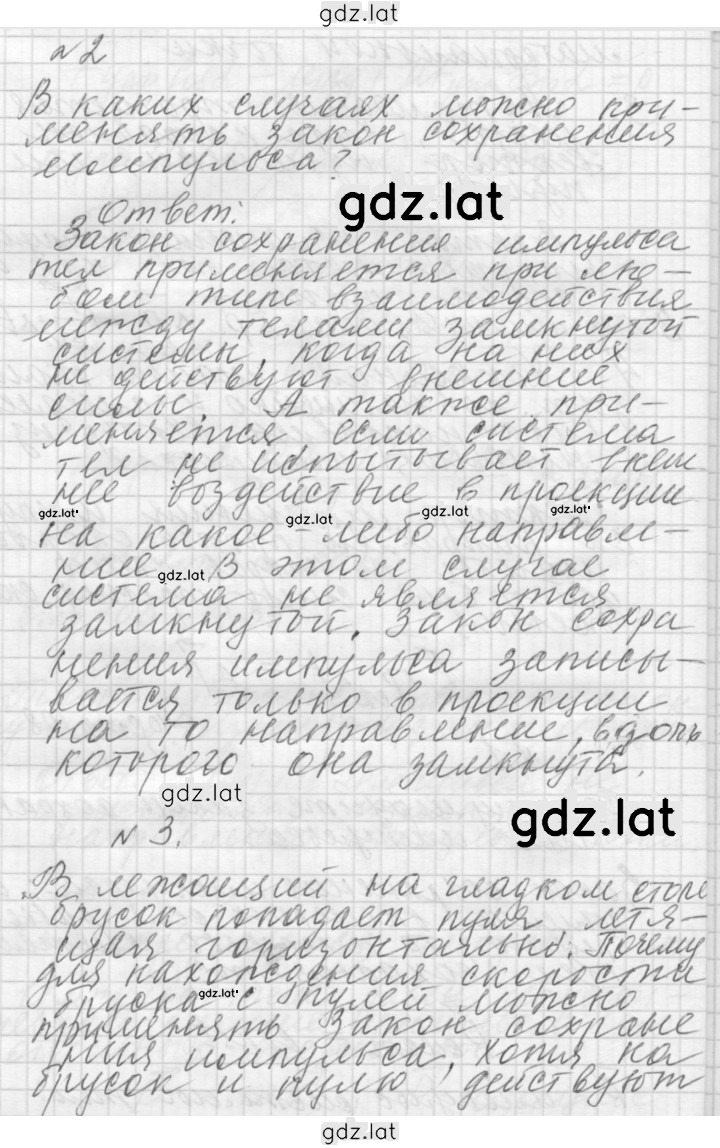 gdz.lat
№2
В каких случаях можно при-
менять закон сохранения
импульса?
gdz.lat
Ответ:
Закон сохранения импульса
тел применяется при лю-
бом типе взаимодействия
между телами замкнутой
системы, когда на них
не действуют внешние
силы. А также при-
меняется, если система
тел не испытывает внеш
нее воздействие в проекции
gdz.lat gdz.lat gdz.lat gdz.lat
на какое-либо направле-
ние. В этом случае
gdz.lat
система не является
замкнутой. Закон сохра
нения импульса записы-
вается только в проекции
на то направление, вдоль
которого она замкнута.
gdz.lat
№3.
gdz.lat
В лежащий на гладком столе
брусок попадает пуля летя-
щая горизонтально. Почему
для нахождения скорости
бруска с пулей можно
gdz.lat
применять закон сохране
ния импульса, хотя на
брусок и пулю действуют
gdz.lat